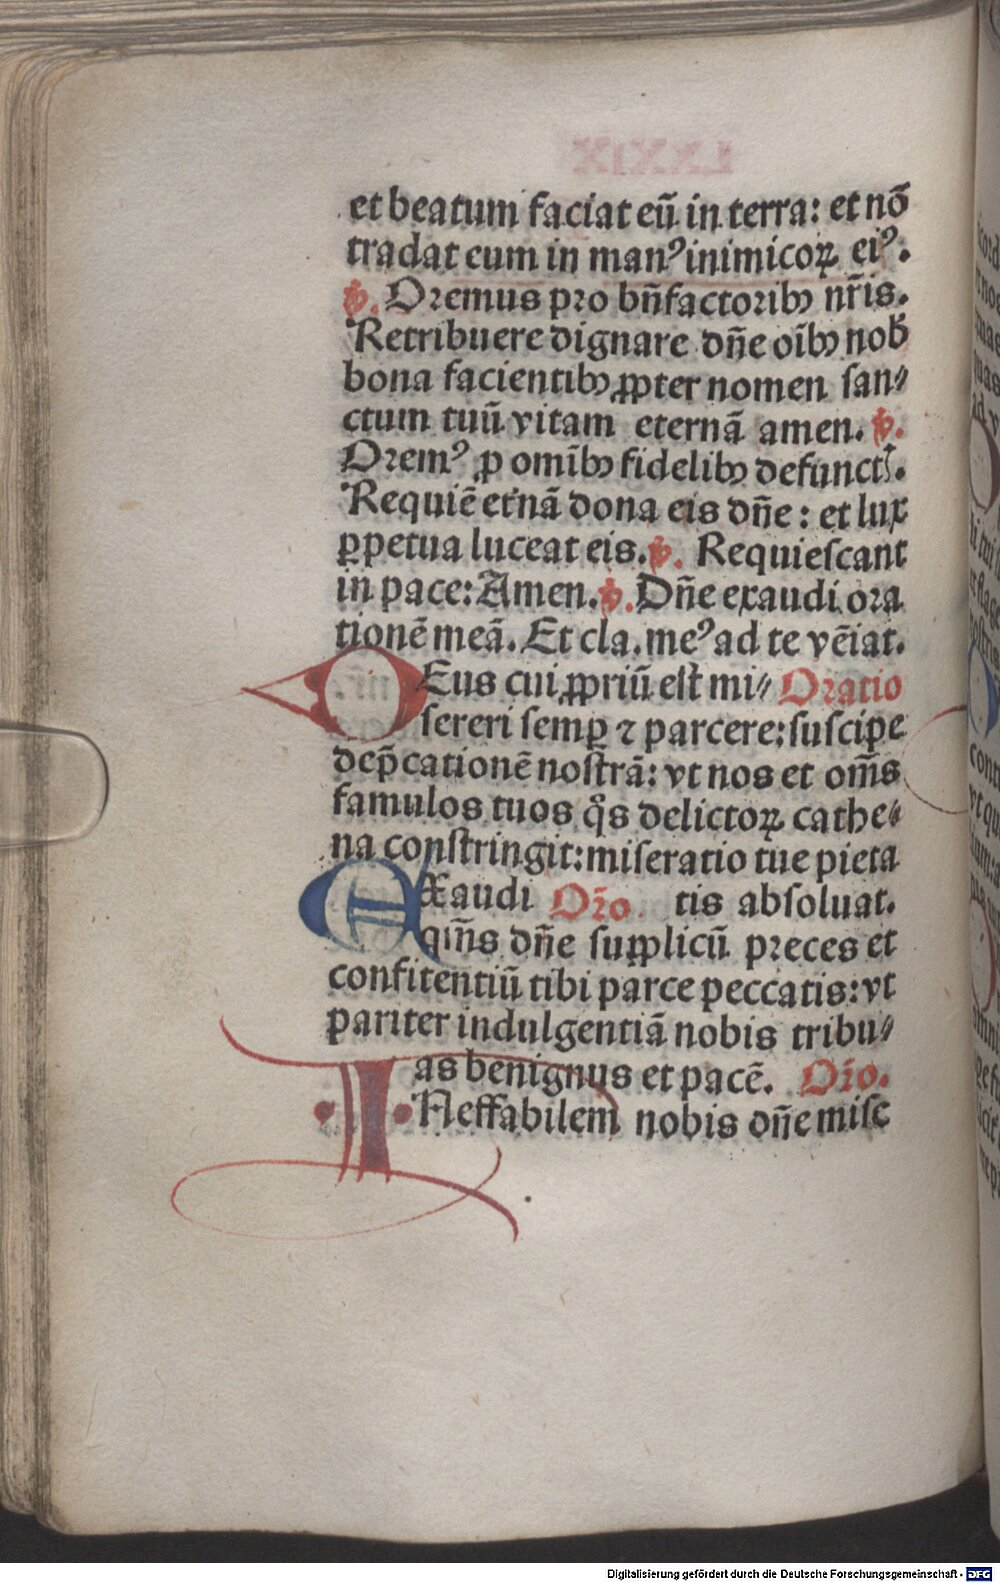 et beatum faciat eū in terra: et nō
tradat eum in manꝰ inimicoꝝ eiꝰ.
℣. Oremus pro bn̄factoribꝫ nr̄is.
Retribuere dignare dn̄e oībꝫ nob̄
bona facientibꝫ ꝓpter nomen san⸗
ctum tuū vitam eternā amen. ℣.
Oremꝰ ꝓ omībꝫ fidelibꝫ defunct̄.
Requiē et̄nā dona eis dn̄e: et lux
ꝑpetua luceat eis. ℣. Requieſcant
in pace: Amen. ℣. Dn̄e exaudi ora
tionē meā. Et cla. meꝰ ad te vēiat.
DEus cui ꝓpriū eſt mi⸗ Oratio
ſereri ſemꝑ ⁊ parcere: ſuſcipe
dep̄cationē noſtrā: vt nos et om̄s
famulos tuos qͦs delictoꝝ cathe⸗
na conſtringit: miſeratio tue pieta
EXaudi Or̄o. tis abſoluat.
qm̄s dn̄e ſupplicū preces et
confitentiū tibi parce peccatis: vt
pariter indulgentiā nobis tribu⸗
as benignus et pacē. Or̄o.
INeffabilem nobis dn̄e miſc
Digitalisierung gefördert durch die Deutsche Forschungsgemeinschaft - DFG